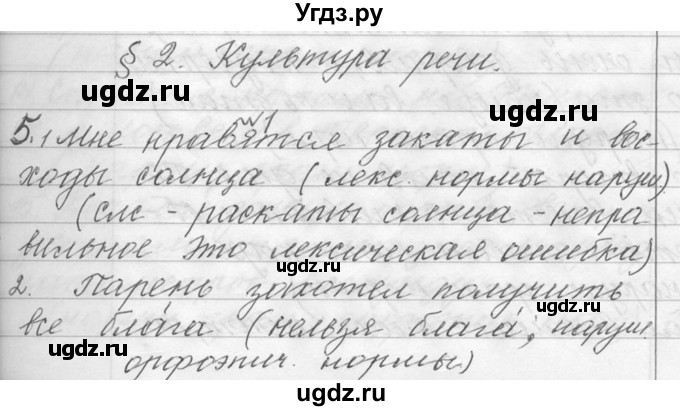 Угдз.ру
§ 2. Культура речи.
©gdz.ru
gdz.ru
№1
5. 1 Мне нравятся закаты и вос-
ходы солнца (лекс. нормы наруш)
(слс - раскаты солнца - непра-
вильное это лексическая ошибка)
gdz.ru
2. Парень захотел получить
gdz.ru
все бла́га (нельзя блага́, наруш.
gdz.ru
орфоэпич. нормы)
gdz.ru
gdz.ru